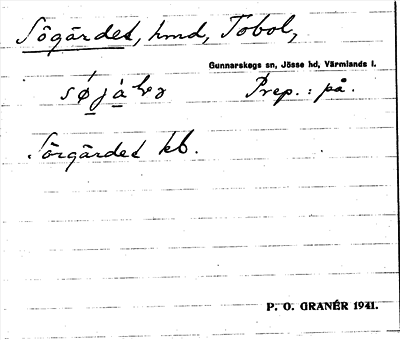 Sögärdet, hmd, Tobol,
Gunnarskogs sn, Jösse hd, Värmlands l.
Prep.: på.
Sörgärdet kb.
P. O. GRANÉR 1941.